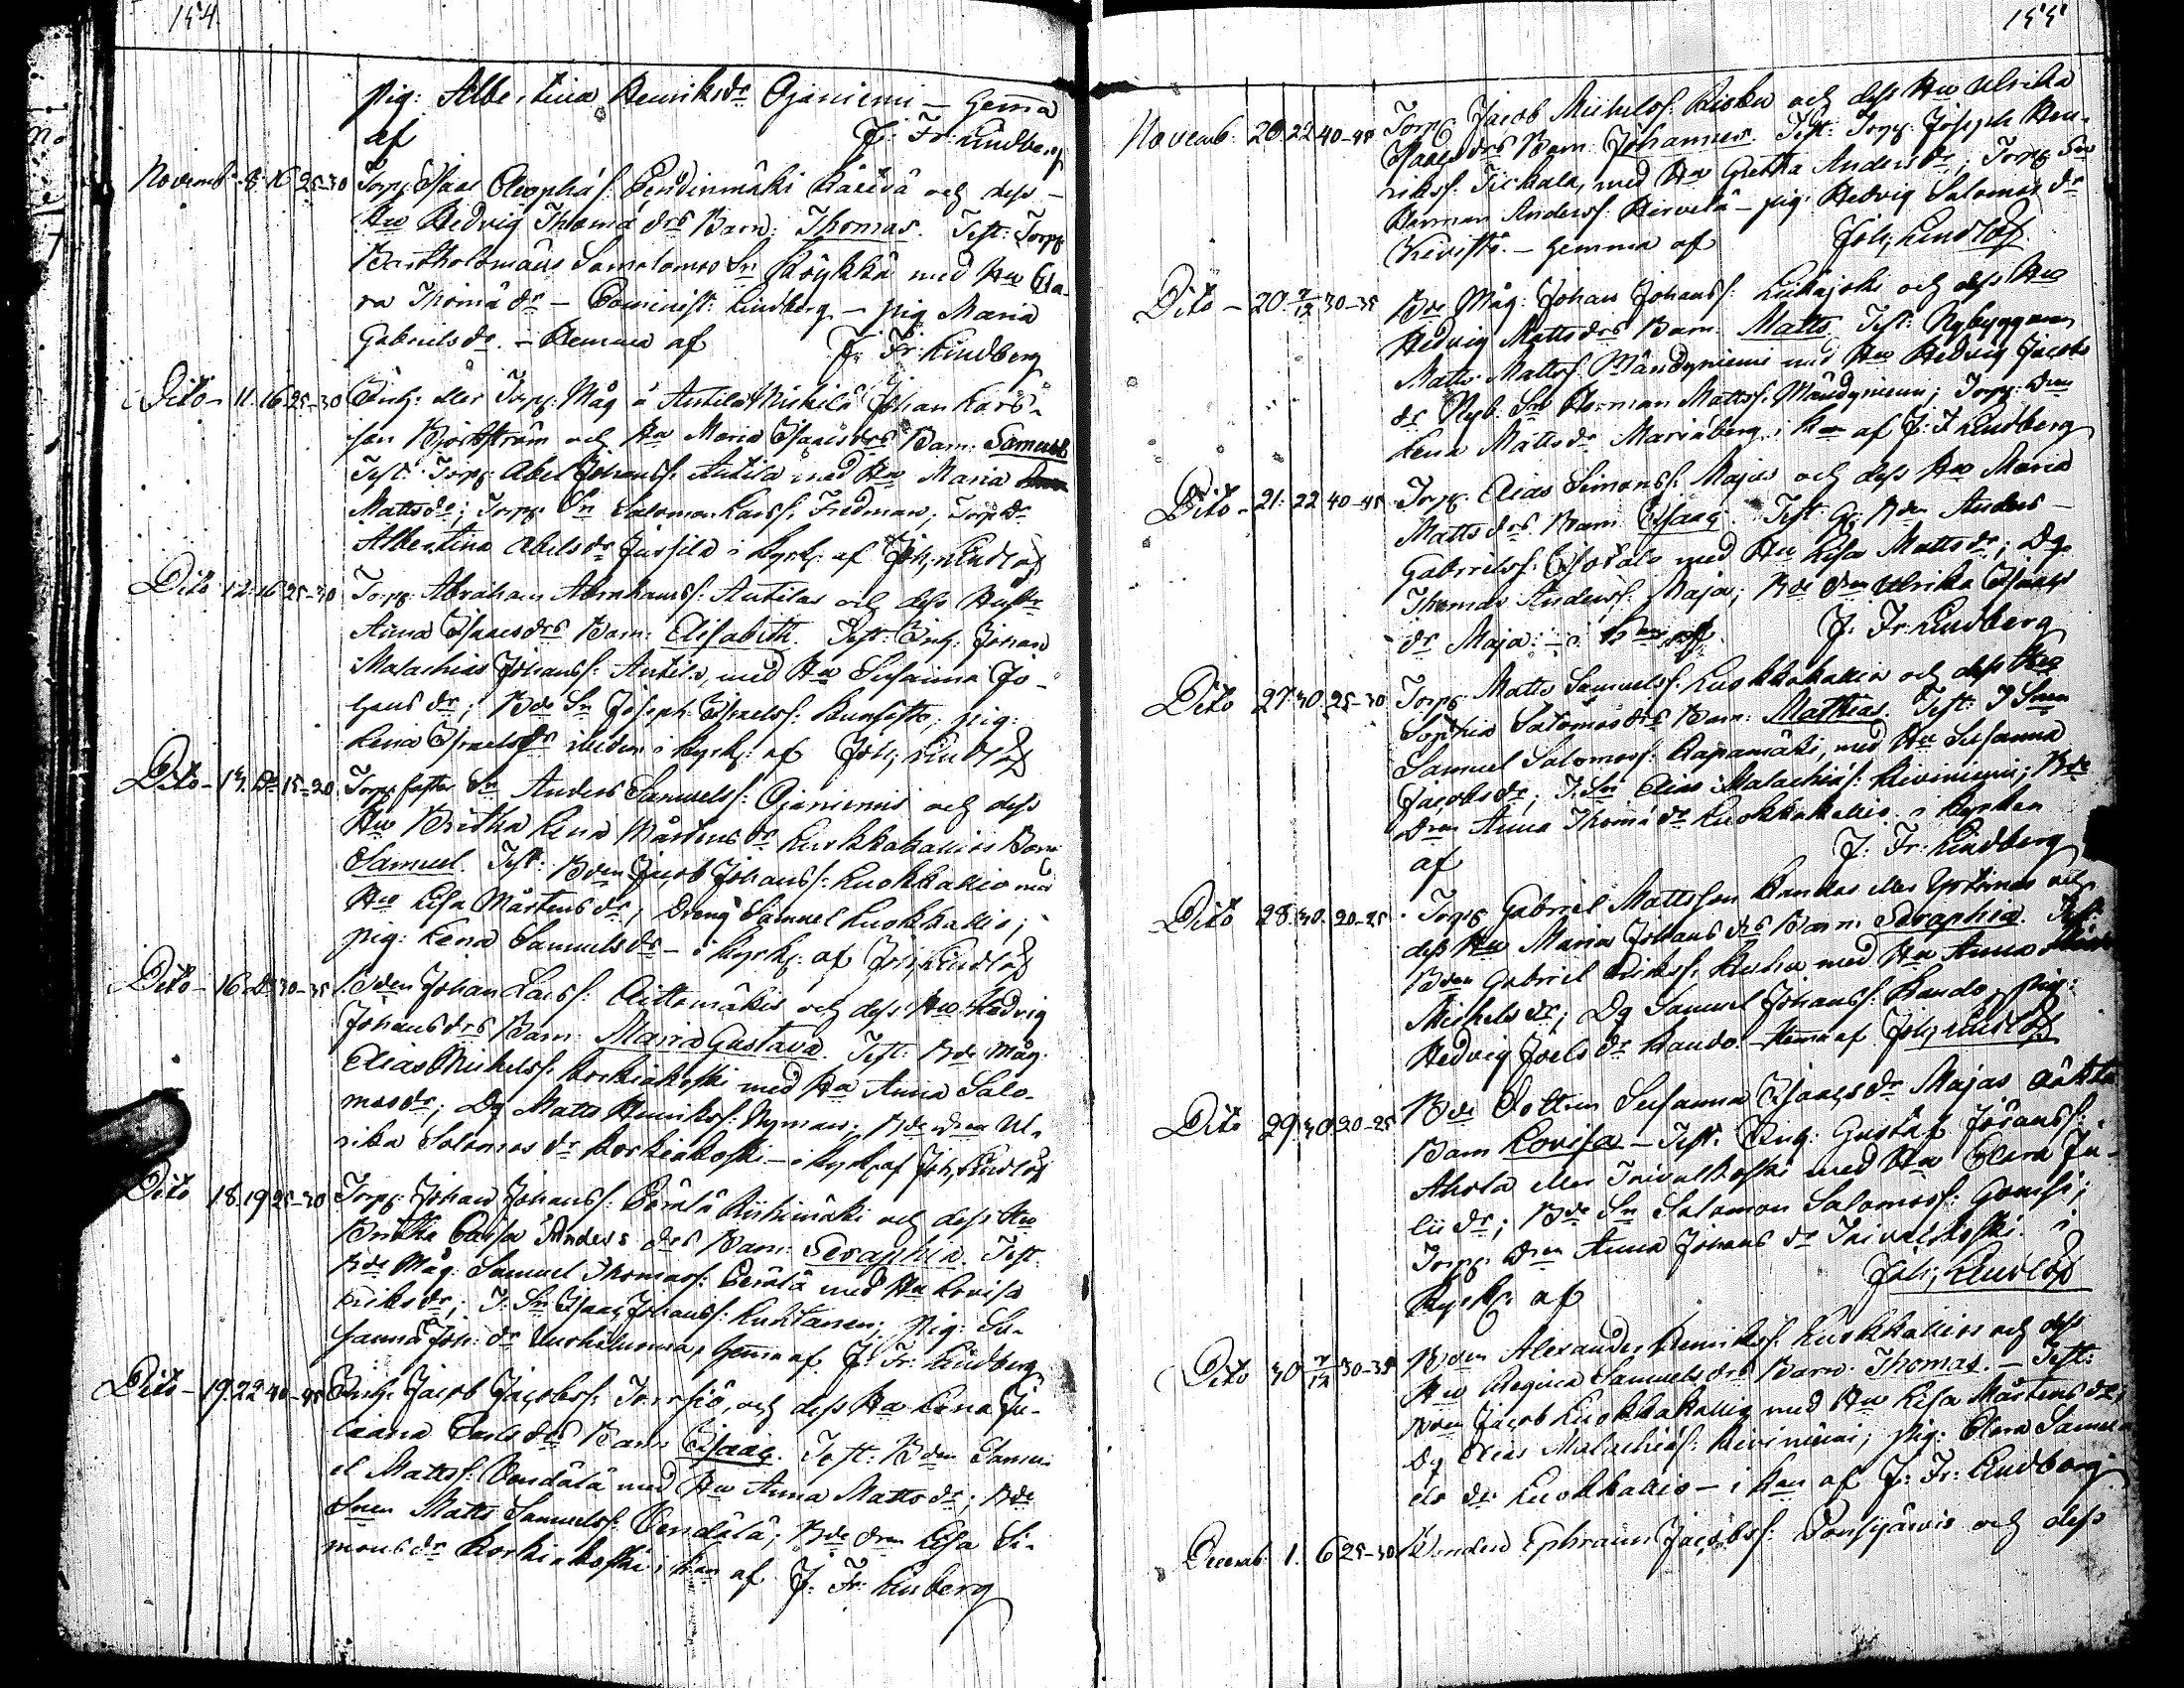 154.
pig: Albertina Henriksdr Ojaniemi – Hemma
af J: Fr: Lindberg
Novemb. 8. 16 25-30 Torp: Isaac Cleophæs: Pendinmäki Käcivä och dess
Hu Hedvig Thomædrs Barn: Thomas. Test: Torp:
Bartholomæus Samelomos Sn Köykkä med Hu Cla-
ra Thomædr – Cominist: Lindberg – pig Maria
Gabrielsdr – Hemma af J: Fr: Lindberg
Dito – 11. 16 25-30 Inh: eller Torp: Måg å Antila Michila Johan Karls-
son Björkström och Hu Maria Isaacsdrs Barn: Samuel
Test: Torp: Abel Johanss: Antila med Hu Maria
Mattsdr; Torp: Sn Salomon Larss: Fredman; Torp: Dr
Albertina Abelsdr Jussila i Kyrk: af Joh: Lindlöf
Dito 12. 16 25-30 Torp: Abraham Abrahamss: Antilas och dess Hustr
Anna Isaacsdrs Barn: Elisabeth. Test: Inh: Johan
Malachias Johanss: Antila, med Hu Susanna Jo-
hansdr; Bde Sn Joseph Israelss: ; pig:
Lena Israelsdr i Kyrk: af Joh: Lindlöf
Dito – 13. Do 15-20 Torp: Sn Anders Samuelss: Ojaniemi och dess
Hu Britha Lena Mårtensdr Luokkakallios Barn
Samuel. Test: Bden Jacob Johanss: Luokkallio med
Hu Lisa Mårtensdr; Dräng Samuel Luokkallio;
pig: Lena Samuelsdr – i Kyrk: af Joh: Lindlöf
Dito – 16 Do 30-35 Bden Johan Larss: Aittomäkis och dess Hu Hedvig
Johansdrs Barn: Maria Gustava. Test: Bde Måg:
Elias Michelss: Korkiakoski med Hu Anna Salo-
mosdr; Dg Matts Henrikss: Nyman; Bde Dren Ul-
rika Salomosdr Korkiakoski – i Kyrk: af Joh: Lindlöf
Dito 18. 19 25-30 Torp: Johan Johanss: Perälä Riihimäki och dess Hu
Britha Caisa Andersdrs Barn: Seraphia. Test:
Bde Måg: Samuel Thomass: Perälä med Hu Lovisa
Eriksdr; T: Sn Isaac Johanss: Luhtanen; pig: Su-
sanna Joh:dr , Hemma af J: Fr: Lindberg
Dito – 19. 22 40-45 Inh: Jacob Jacobss: Torrsjö, och dess Hu Lena Ju-
liana Carlsdrs Barn Isaac. Test: Bden Samu-
el Mattss: Vendälä med Hu Anna Mattsdr; Bde
Snen Matts Samuelss: Vendälä; Bde Dren Lisa Si-
monsdr Korkiakoski i Kan af J: Fr: Linberg
155
Novemb: 20. 22 40-45 Torp: Jacob Michelss: Risku och dess Hu Ulrika
Isaacsdrs Barn: Johannes. Test: Torp: Joseph Hen-
rikss: Tickala, med Hu Gretha Andersdr; Torp: Sn
Herman Anderss: Hirvelä – pig: Hedvig Salomosdr
Kivistö. – Hemma af Joh: Lindlöf
Dito – 20. 7/12 30-35 Bde Måg: Johan Johanss: Luikajoki och dess Hu
Hedvig Mattsdrs Barn: Matts. Test: Nybyggaren
Matts Mattss: Mändyniemi med Hu Hedvig Jacobs
dr Nyb: Sn Herman Mattss: Mändyniemi; Torp: Dren
Lena Mattsdr Mariaberg i Kan af J: F Lindberg
Dito – 21. 22 40-45 Torp: Elias Simonss: Majas och dess Hu Maria
Mattsdrs Barn: Isaac. Test: Bden Anders
Gabrielss: Isotalo med Hu Lisa Mattsdr; Dg
Thomas Anderss: Maja; Bde Dren Ulrika Isaacs
dr Maja: – i Kan af J: Fr: Lindberg
Dito 27. 30. 25-30 Torp: Matts Samuelss: Luokkakallio och dess Hu
Sophia Salomosdrs Barn: Mathias. Test: T Snen
Samuel Salomoss: Rapamäki, med Hu Susanna
Jacobsdr; T. Sn Elias Malachiæs: Kiviniemi; Bde
Dren Anna Thomædr Luokkakallio i Kyrkan
af J: Fr: Lindberg
Dito 28. 30. 20-25 Torp: Gabriel Mattsson Kandas eller och
dess Hu Maria Johansdrs Barn: Seraphia. Test:
Bden Gabriel Erikss: Kuha med Hu Anna
Michelsdr; Dg Samuel Johanss: Kando, pig:
Hedvig Joelsdr Kando. Hemma af Joh: Lindlöf
Dito 29. 30 20-25 Bde Dottren Susanna Isaacsdr Majas oäkta
Barn Lovisa – Test: Inh: Gustaf Johanss:
Ahola eller Taivalkoski med Hu Clara Ju-
liidr; Bde Sn Salomon Salomoss: ;
Torp: Dren Anna Johansdr Taivalkoski. i
Kyrk: af Joh: Lindlöf
Dito 30 7/12 30-35 Bden Alexander Henrikss: Luokkallios och dess
Hu Regina Samuelsdrs Barn: Thomas. – Test:
Bden Jacob Luokkakallio med Hu Lisa Mårtensdr;
Dg Elias Malachiæs: Kiviniemi; pig: Clara Samu-
elsdr Luokkallio – i Kan af J: Fr: Lindberg
Decemb 1. 6 25-30 Bonden Ephraim Jacobss: Pensjärvis och dess